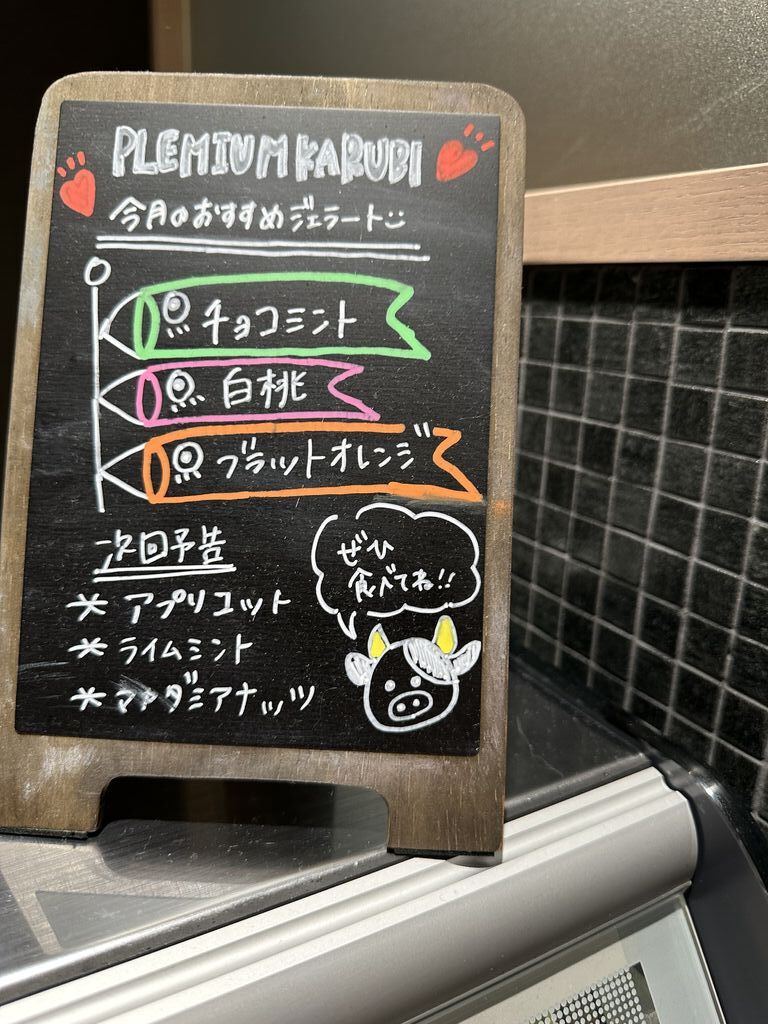 PLEMIUM KARUBI
今月のおすすめジェラート
チョコミント
白桃
ブラットオレンジ
次回予告
* アプリコット
* ライムミント
* マカダミアナッツ
ぜひ
食べてね!!